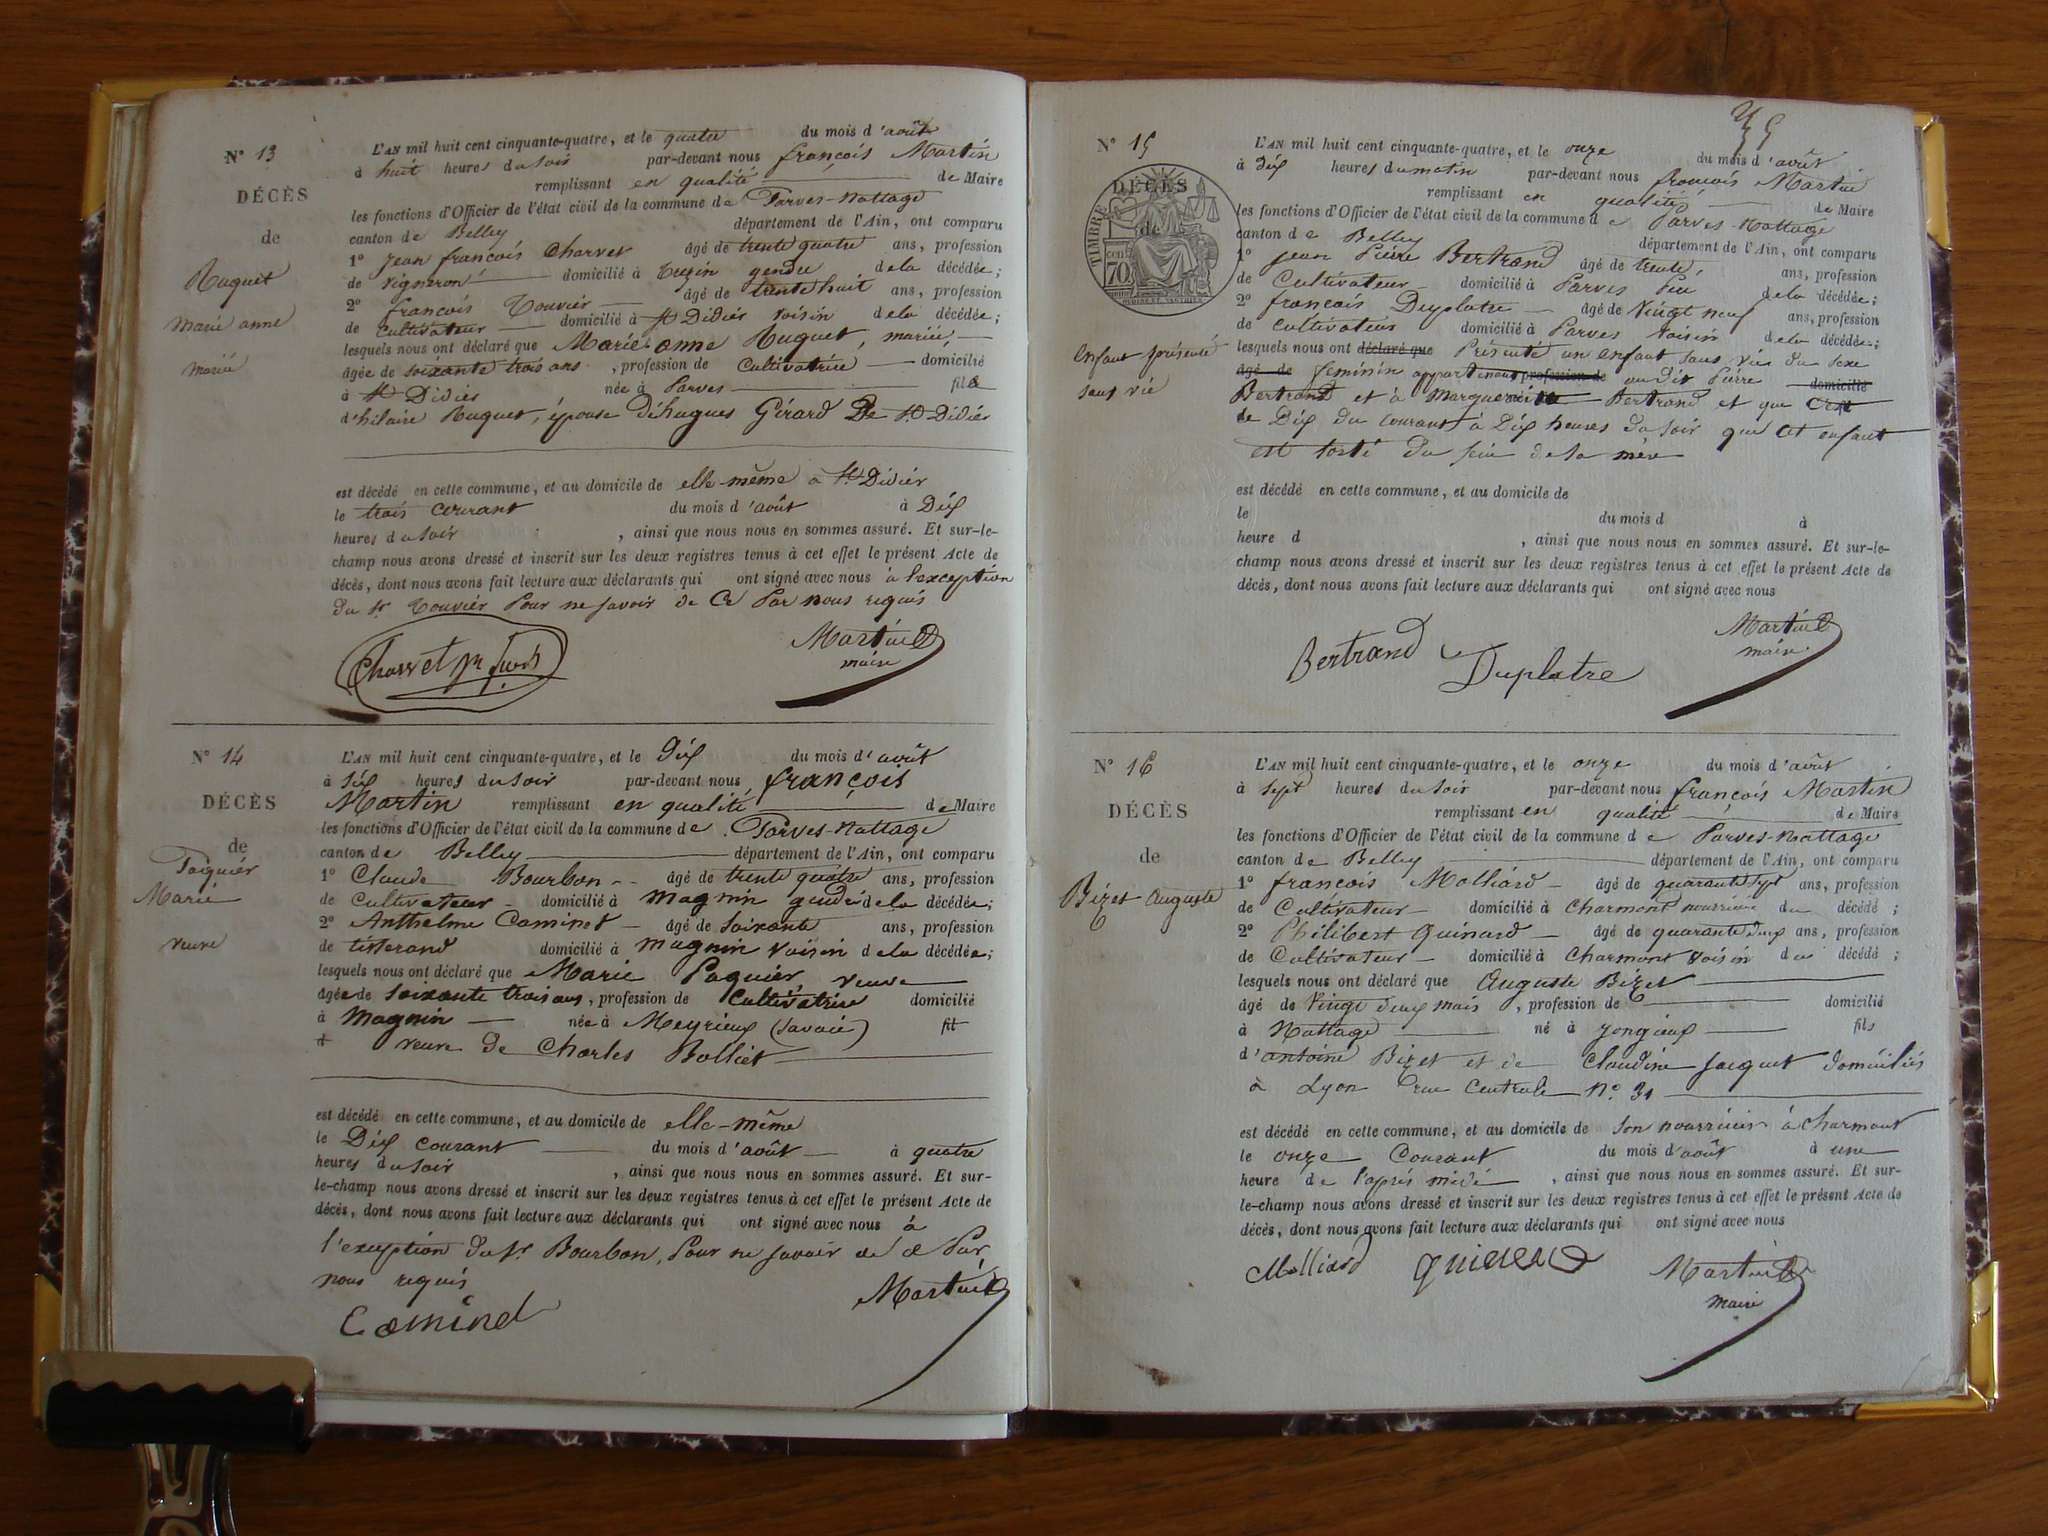 N° 13
DÉCÈS
de
Huguet
Marie anne
mariée
L'AN mil huit cent cinquante-quatre, et le quatre du mois d'août
à huit heures du soir par-devant nous françois Martin
remplissant en qualité de Maire
les fonctions d'Officier de l'état civil de la commune de Parves-Nattage
canton de Belley département de l'Ain, ont comparu
1° Jean françois Charvet âgé de trente quatre ans, profession
de vigneron domicilié à gendre de la décédée;
2° françois Touvier âgé de trente huit ans, profession
de cultivateur domicilié à St Didier voisin de la décédée;
lesquels nous ont déclaré que Marie-anne Huguet, mariée,
âgée de soixante trois ans, profession de Cultivatrice domicilié
à St Didier née à Parves fille
d'hilaire Huguet, épouse d'hugues Girard De St Didier
est décédé en cette commune, et au domicile de elle-même à St Didier
le trois courant du mois d'août à Dix
heures du soir, ainsi que nous nous en sommes assuré. Et sur-le-
champ nous avons dressé et inscrit sur les deux registres tenus à cet effet le présent Acte de
décès, dont nous avons fait lecture aux déclarants qui ont signé avec nous à l'exception
du Sr Touvier Pour ne savoir de Ce Par nous requis
Charvet
Martin
maire
N° 14
DÉCÈS
de
Paiguier
Marie
veuve
L'AN mil huit cent cinquante-quatre, et le Dix du mois d'août
à six heures du soir par-devant nous françois
Martin remplissant en qualité de Maire
les fonctions d'Officier de l'état civil de la commune de Parves-Nattage
canton de Belley département de l'Ain, ont comparu
1° Claude Bourbon âgé de trente quatre ans, profession
de Cultivateur domicilié à Magnin gendre de la décédée;
2° Anthelme Caminet âgé de soixante ans, profession
de tisserand domicilié à Magnin Voisin de la décédée;
lesquels nous ont déclaré que Marie Paquier, veuve
âgée de soixante trois ans, profession de Cultivatrice domicilié
à Magnin née à Meyrieux (Savoie) fil
d veuve de Charles Bolliet
est décédé en cette commune, et au domicile de elle-même
le Dix courant du mois d'août à quatre
heures du soir, ainsi que nous nous en sommes assuré. Et sur-
le-champ nous avons dressé et inscrit sur les deux registres tenus à cet effet le présent Acte de
décès, dont nous avons fait lecture aux déclarants qui ont signé avec nous à
l'exception du Sr Bourbon, Pour ne savoir de ce Par
nous requis
Martin
Caminet
35
N° 15
DÉCÈS
de
TIMBRE
70
enfant présenté
sans vie
L'AN mil huit cent cinquante-quatre, et le onze du mois d'août
à dix heures du matin par-devant nous françois Martin
remplissant en qualité de Maire
les fonctions d'Officier de l'état civil de la commune de Parves-Nattage
canton de Belley département de l'Ain, ont comparu
1° Jean Pierre Bertrand âgé de trente, ans, profession
de Cultivateur domicilié à Parves de la décédée;
2° françois Duplatre âgé de vingt neuf ans, profession
de cultivateur domicilié à Parves voisin de la décédée;
lesquels nous ont déclaré que Présenté un enfant sans vie du sexe
âgé de feminin appartenant profession de au dit Pierre domicilié
Bertrand et à Marguerite Bertrand et que C'est
le Dix du courant à Dix heures du soir que cet enfant
est sorti du sein de sa mère
est décédé en cette commune, et au domicile de
le du mois d à
heure d, ainsi que nous nous en sommes assuré. Et sur-le-
champ nous avons dressé et inscrit sur les deux registres tenus à cet effet le présent Acte de
décès, dont nous avons fait lecture aux déclarants qui ont signé avec nous
Martin
maire
Bertrand Duplatre
N° 16
DÉCÈS
de
Bizet Auguste
L'AN mil huit cent cinquante-quatre, et le onze du mois d'août
à sept heures du soir par-devant nous françois Martin
remplissant en qualité de Maire
les fonctions d'Officier de l'état civil de la commune de Parves-Nattage
canton de Belley département de l'Ain, ont comparu
1° françois Molliard âgé de quarante sept ans, profession
de Cultivateur domicilié à Charmont nourricier du décédé;
2° Philibert Guinard âgé de quarante deux ans, profession
de Cultivateur domicilié à Charmont voisin du décédé;
lesquels nous ont déclaré que Auguste Bizet
âgé de vingt deux mois, profession de domicilié
à Nattage né à Jongieux fils
d'antoine Bizet et de Claudine Jacquet domiciliés
à Lyon rue Centrale N° 31
est décédé en cette commune, et au domicile de son nourricier à Charmont
le onze Courant du mois d'août à une
heure de l'après midi, ainsi que nous nous en sommes assuré. Et sur-
le-champ nous avons dressé et inscrit sur les deux registres tenus à cet effet le présent Acte de
décès, dont nous avons fait lecture aux déclarants qui ont signé avec nous
Molliard Guinard Martin
maire